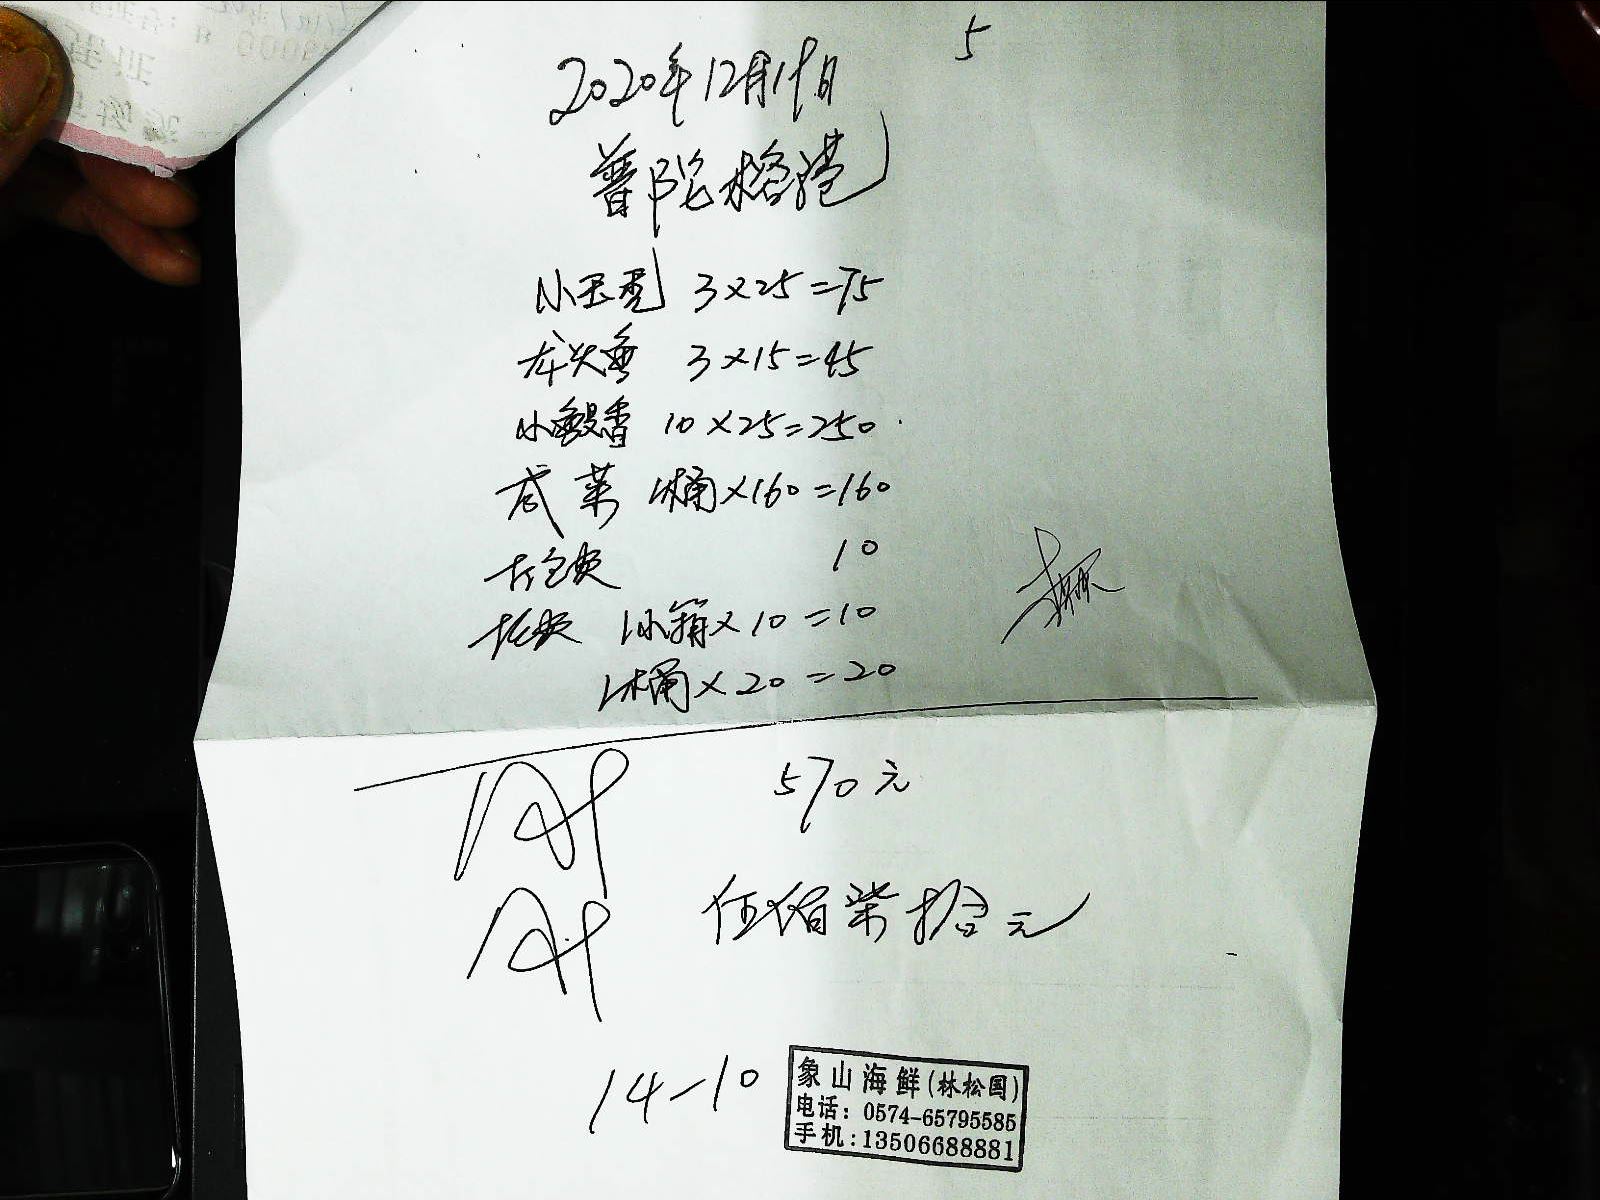 5
2020年12月19日
普陀榕港
小玉秃 3×25=75
龙头鱼 3×15=45
小鳗香 10×25=250
咸菜 1桶×160=160
打包费 10
托费 1小箱×10=10
1桶×20=20
570元
伍佰柒拾元
14-10
象山海鲜(林松国)
电话:0574-65795585
手机:13506688881